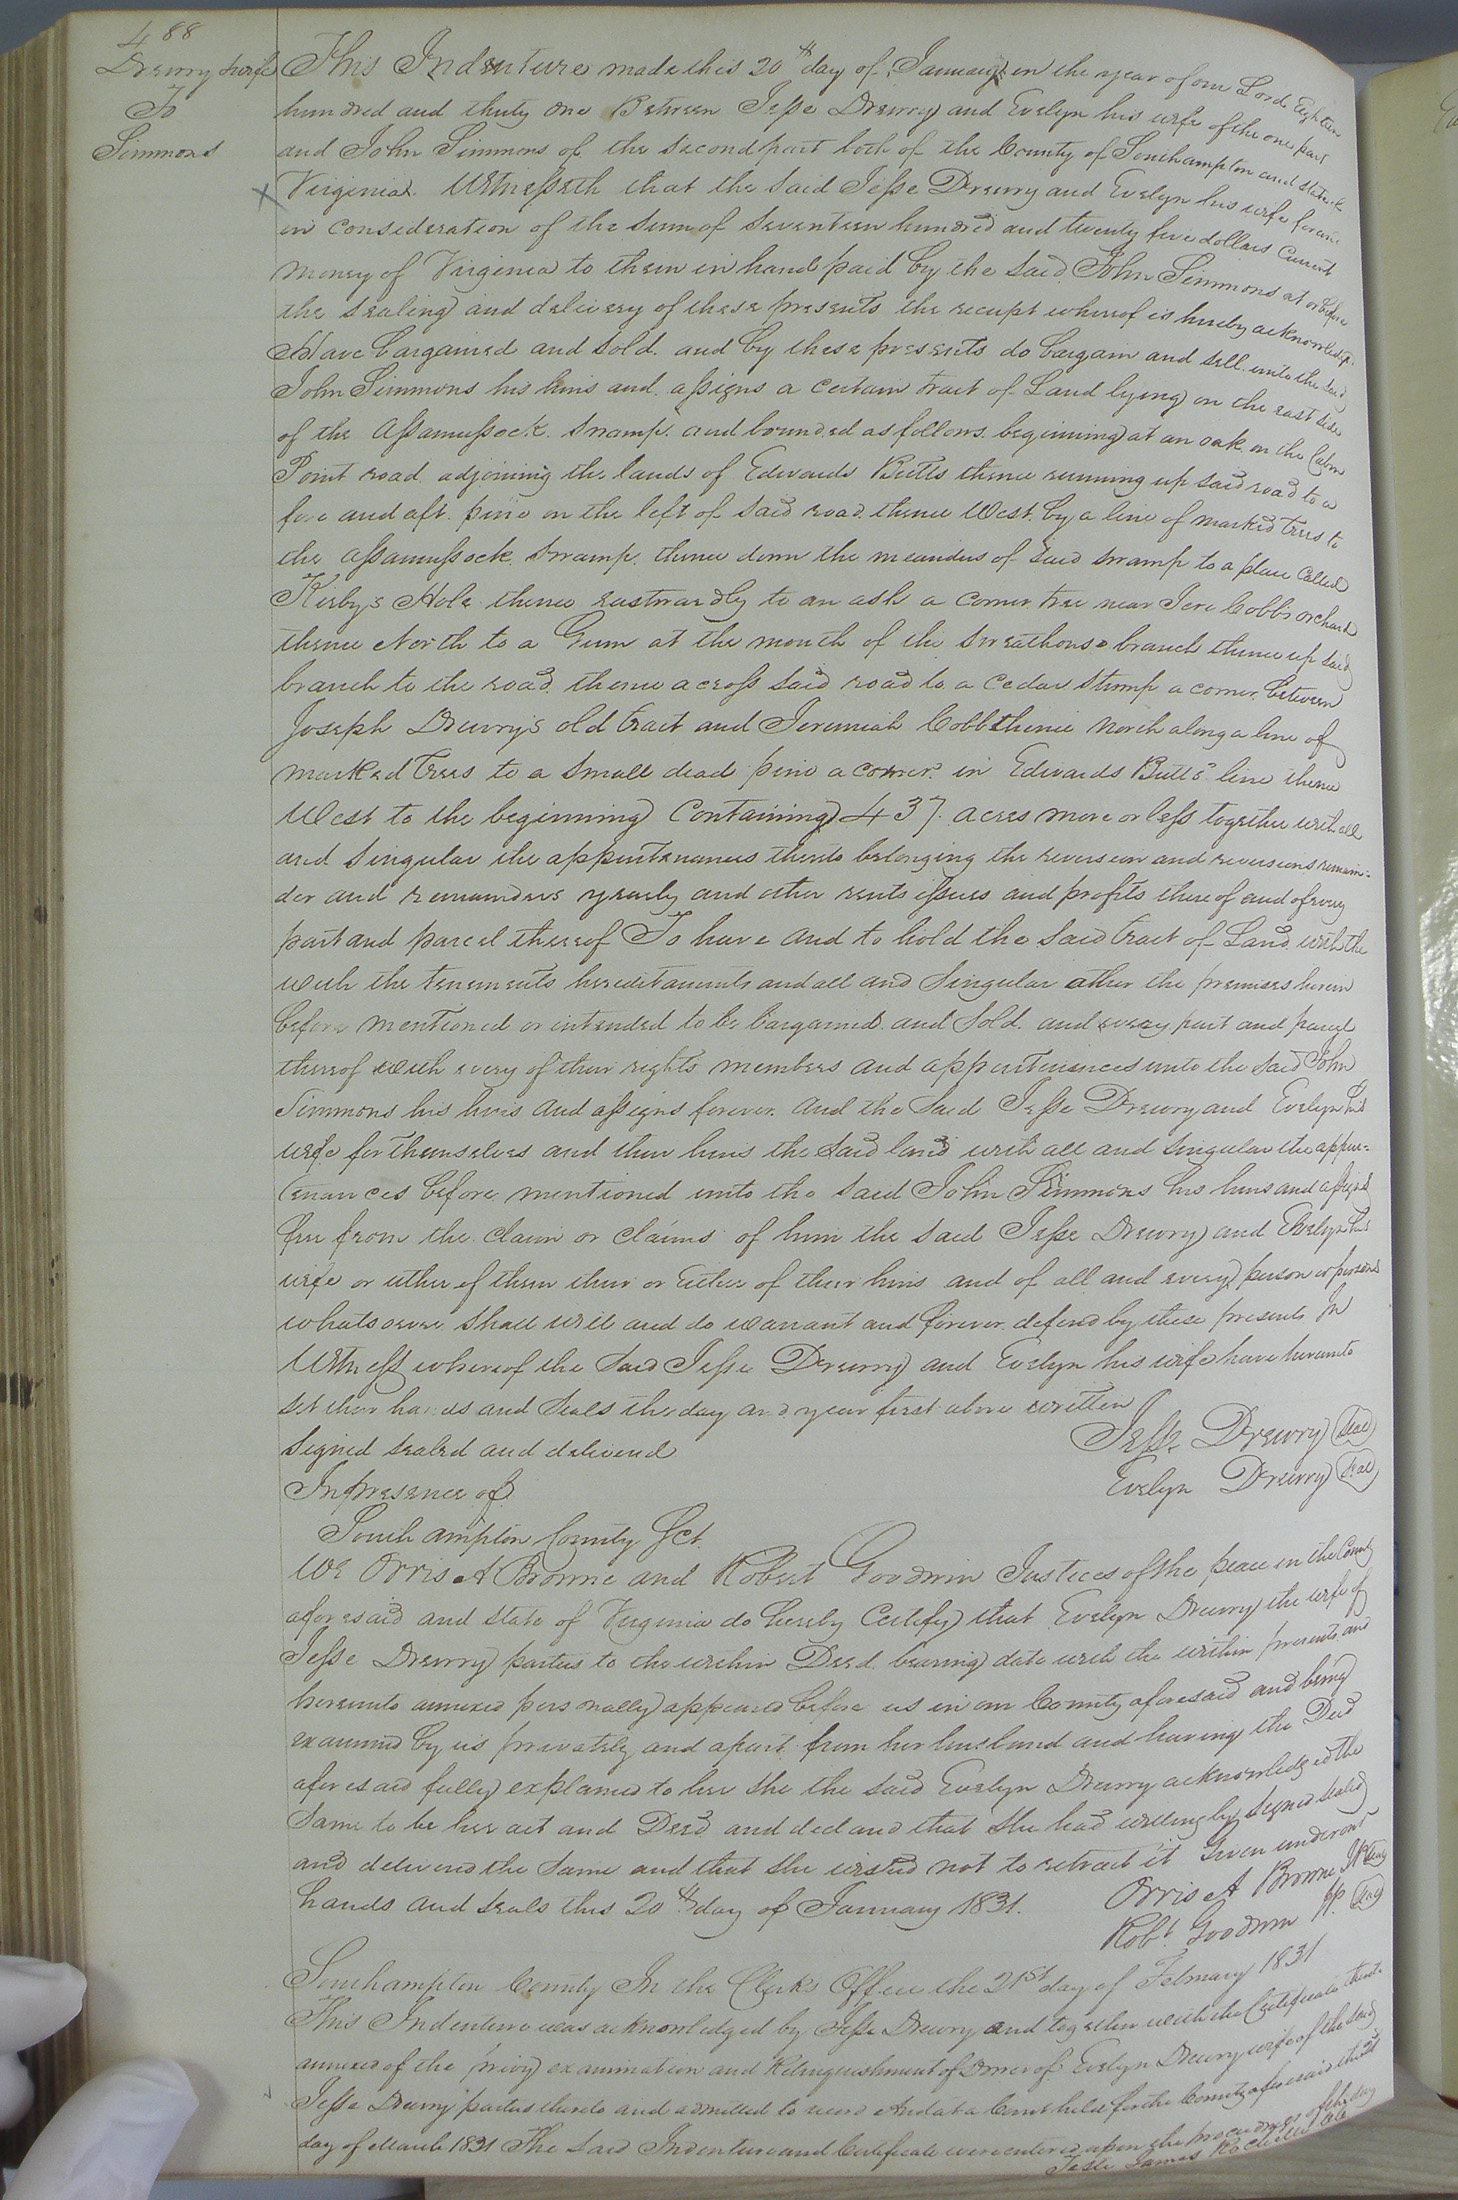 488
Drewry & wife
To
Simmons
This Indenture made this 20th day of January in the year of our Lord Eighteen
hundred and thirty one Between Jesse Drewry and Evelyn his wife of the one part
and John Simmons of the second part both of the County of Southampton and State of
Virginia. Witnesseth that the said Jesse Drewry and Evelyn his wife for and
in consideration of the sum of seventeen hundred and twenty five dollars current
money of Virginia to them in hand paid by the said John Simmons at or before
the sealing and delivery of these presents the receipt whereof is hereby acknowledged
Have bargained and sold. and by these presents do bargain and sell unto the said
John Simmons his heirs and assigns a certain tract of Land lying on the east side
of the Assamussock Swamp. and bounded as follows. beginning at an oak on the Cabin
Point road adjoining the lands of Edwards Butts thence running up said road to a
fore and aft pine on the left of said road. thence West. by a line of marked trees to
the Assamussock Swamp. thence down the meanders of said swamp to a place called
Kerby's Hole thence eastwardly to an ash a corner tree near Jere Cobbs orchard
thence North to a Gum at the mouth of the Sweathouse branch thence up said
branch to the road thence across said road to a cedar stump a corner between
Joseph Drewry's old tract and Jeremiah Cobb thence North along a line of
marked trees to a small dead pine a corner in Edwards Butts' line thence
West to the beginning Containing 437 acres more or less together with all
and singular the appurtenances thereto belonging the reversion and reversions remain-
der and remainders yearly and other rents issues and profits thereof and of every
part and parcel thereof To have and to hold the said tract of Land with the
with the tenements hereditaments and all and singular other the premises herein
before mentioned or intended to be bargained and sold. and every part and parcel
thereof with every of their rights members and appurtenances unto the said John
Simmons his heirs and assigns forever. And the said Jesse Drewry and Evelyn his
wife for themselves and their heirs the said land with all and singular the appur-
tenances before mentioned unto the said John Simmons his heirs and assigns
free from the claim or claims of him the said Jesse Drewry and Evelyn his
wife or either of them their or either of their heirs and of all and every person or persons
whatsoever shall will and do warrant and forever defend by these presents In
Witness whereof the said Jesse Drewry and Evelyn his wife have hereunto
set their hands and seals the day and year first above written
Signed sealed and delivered
Jesse Drewry (Seal)
In presence of
Evelyn Drewry (Seal)
Southampton County Sct.
We Orris A Browne and Robert Goodwin Justices of the peace in the County
aforesaid and State of Virginia do hereby Certify that Evelyn Drewry the wife of
Jesse Drewry parties to the within Deed bearing date with the within presents and
hereunto annexed personally appeared before us in our County aforesaid and being
examined by us privately and apart from her husband and having the Deed
aforesaid fully explained to her she the said Evelyn Drewry acknowledged the
same to be her act and Deed and declared that she had willingly signed sealed
and delivered the same and that she wished not to retract it Given under our
hands and seals this 20th day of January 1831.
Orris A Browne JP (Seal)
Robt. Goodwin JP. (Seal)
Southampton County In the Clerks Office the 21st day of February 1831
This Indenture was acknowledged by Jesse Drewry and together with the Certificate thereto
annexed of the privy examination and Relinquishment of Dower of Evelyn Drewry wife of the said
Jesse Drewry parties thereto and admitted to record And at a Court held for the County aforesaid the 21
day of March 1831 The said Indenture and Certificate were entered upon the proceedings of the day
Teste James Rochelle Clk